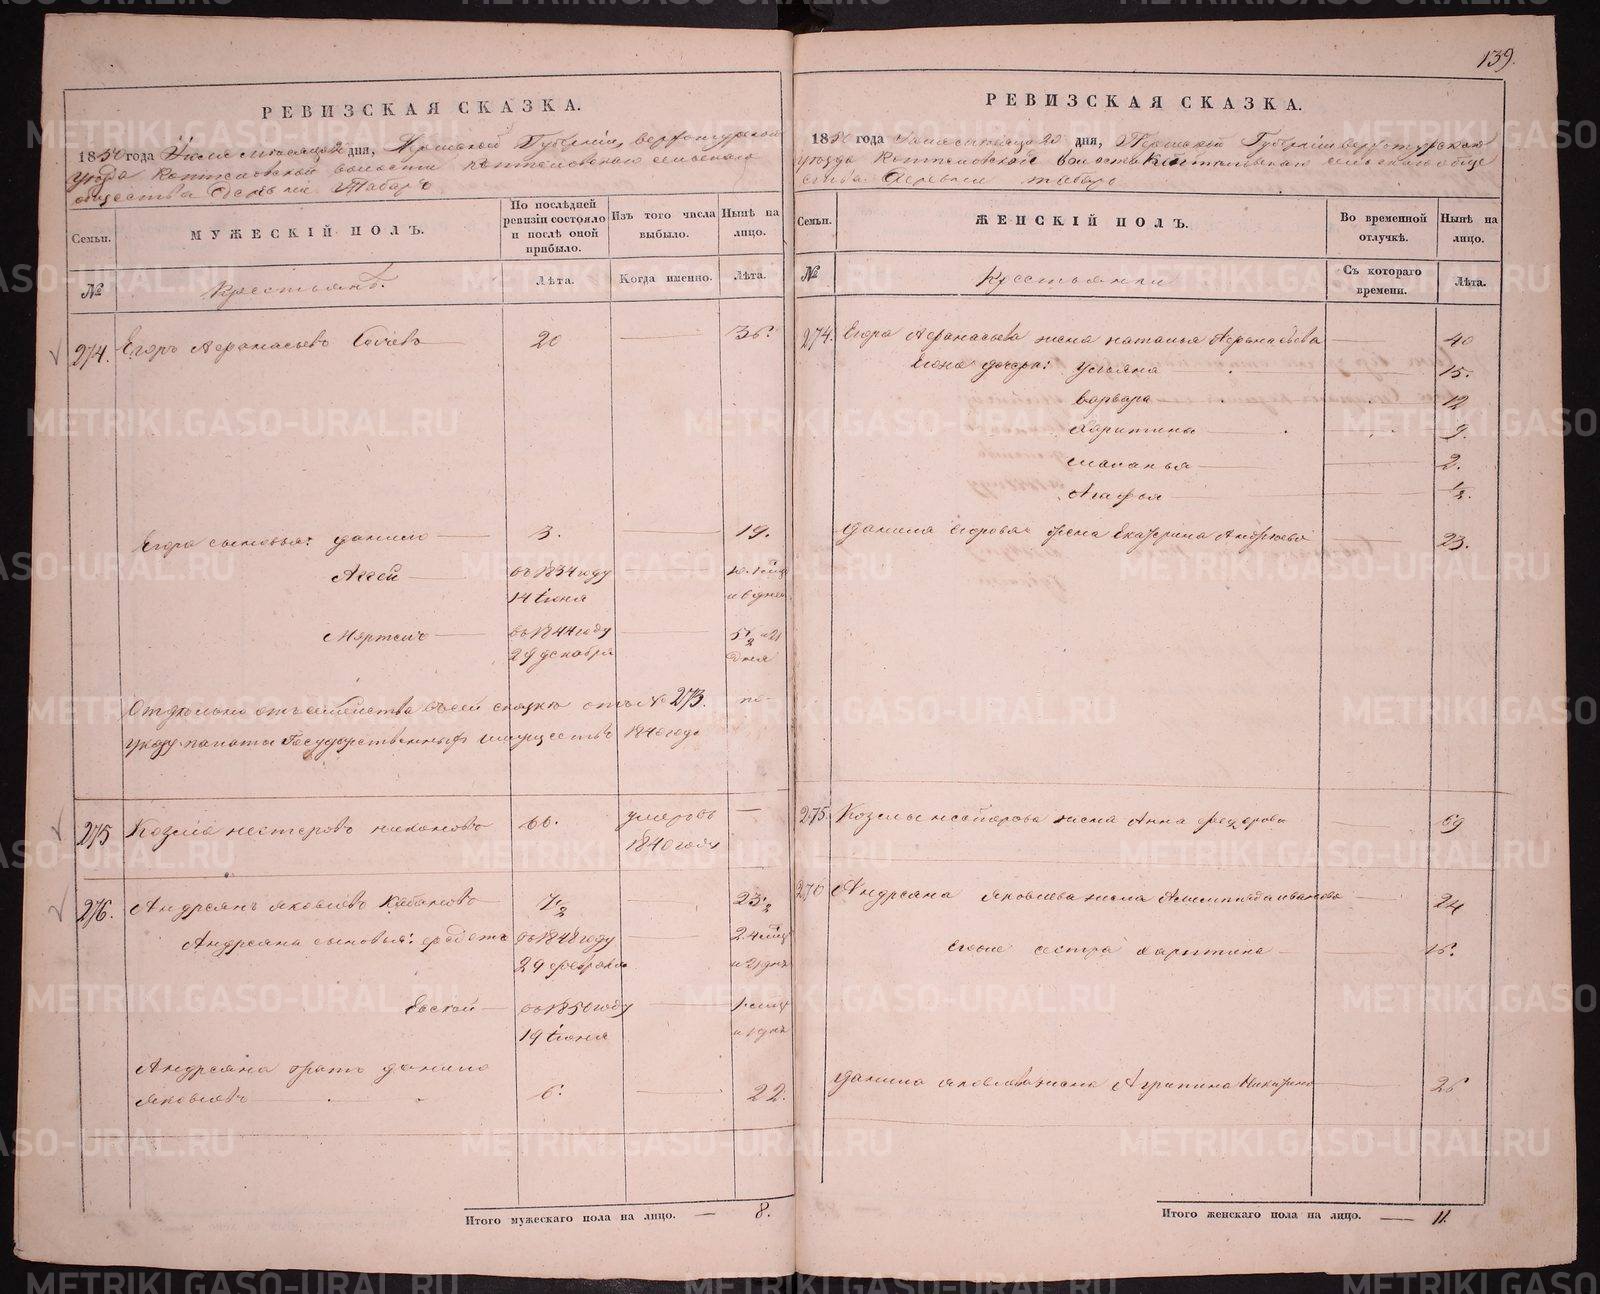 139.
РЕВИЗСКАЯ СКАЗКА.
1850 года Июля месяца 20 дня, Пермской Губернии, верхотурскаго
уезда Коптеловской волости Коптеловскаго сельскаго
общества Деревни Табаръ
Семьи.
МУЖЕСКІЙ ПОЛЪ.
По послѣдней ревизіи состояло и послѣ оной прибыло.
Изъ того числа выбыло.
Нынѣ на лицо.
№
Крестьянъ.
Лѣта.
Когда именно.
Лѣта.
274. Егоръ Афанасьевъ 20 — 36.
Егора сыновья: Данило — 3. — 19.
Аггей — въ 1834 году
14 Июня и 6 дней
Мартинъ — въ 1844 году
29 декабря дня
Отдельно отъ семейства въ сей сказке отъ № 273. по
указу палаты Государственныхъ имуществъ 1840 года
275 Козма нестеровъ 66. умеръ въ —
1840 году
276. Андреянъ яковлевъ Кабановъ 7 1/2 — 23 1/2
Андреяна сыновья: въ 1848 году
29 февраля
въ 1850 году
19 Июня
Андреяна братъ данило
яковлевъ — 6. 22.
Итого мужескаго пола на лицо. — 8.
РЕВИЗСКАЯ СКАЗКА.
1850 года Июля месяца 20 дня, Пермской Губернии верхотурскаго
уезда Коптеловской волости Коптеловскаго сельскаго обще
ства Деревни табаръ
Семьи.
ЖЕНСКІЙ ПОЛЪ.
Во временной отлучкѣ.
Нынѣ на лицо.
№
Крестьянки
Съ котораго времени.
Лѣта.
274. Егора Афанасьева жена наталья Афанасьева — 40
Егора дочери: Устьяна 15.
Варвара 12
Харитина — 9.
Маланья — 2.
Агафья — 1/2.
Данила егорова жена Екатерина Андреева 23.
275. Козмы нестерова жена Анна федорова 69
276 Андреяна яковлева жена иванова 24
сестра харитина — 16.
Данила яковлева жена Агрипина Никитина 26
Итого женскаго пола на лицо. — 11.